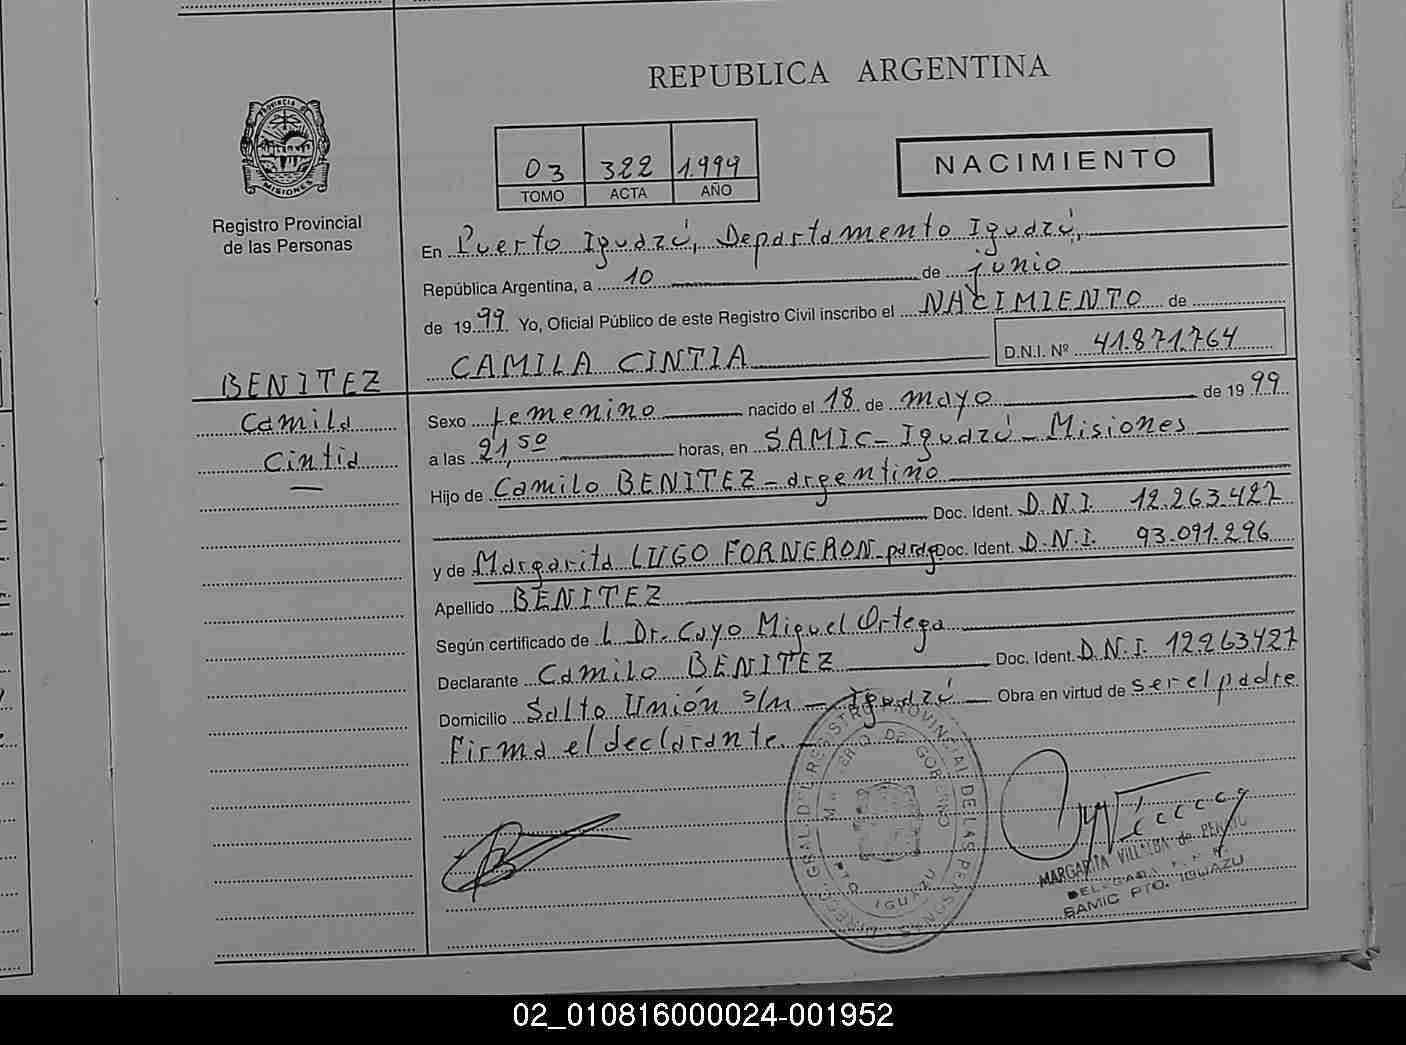 REPUBLICA ARGENTINA
PROVINCIA DE
MISIONES
Registro Provincial
de las Personas
03 322 1.999
TOMO ACTA AÑO
NACIMIENTO
En Puerto Iguazú, Departamento Iguazú,
República Argentina, a 10 de junio
de 1999 Yo, Oficial Público de este Registro Civil inscribo el NACIMIENTO de
CAMILA CINTIA D.N.I. Nº 41.871.764
BENITEZ
Camila
Cintia
Sexo femenino nacido el 18 de mayo de 1999
a las 21,50 horas, en SAMIC - Iguazú - Misiones
Hijo de Camilo BENITEZ - argentino
Doc. Ident. D.N.I. 12.263.427
y de Margarita LUGO FORNERON - parag. Doc. Ident. D.N.I. 93.091.296
Apellido BENITEZ
Según certificado de L Dr. Cayo Miguel Ortega
Declarante Camilo BENITEZ Doc. Ident. D.N.I. 12.263427
Domicilio Salto Unión s/n - Iguazú - Obra en virtud de ser el padre
Firma el declarante.
REGISTRO PROVINCIAL DE LAS PERSONAS
DE GOBIERNO
IGUAZU
MARGARITA VILLALBA de
DELEGADA
SAMIC PTO. IGUAZU
02_010816000024-001952